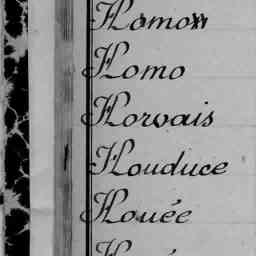 Homon
Homo
Horvais
Houduce
Houée